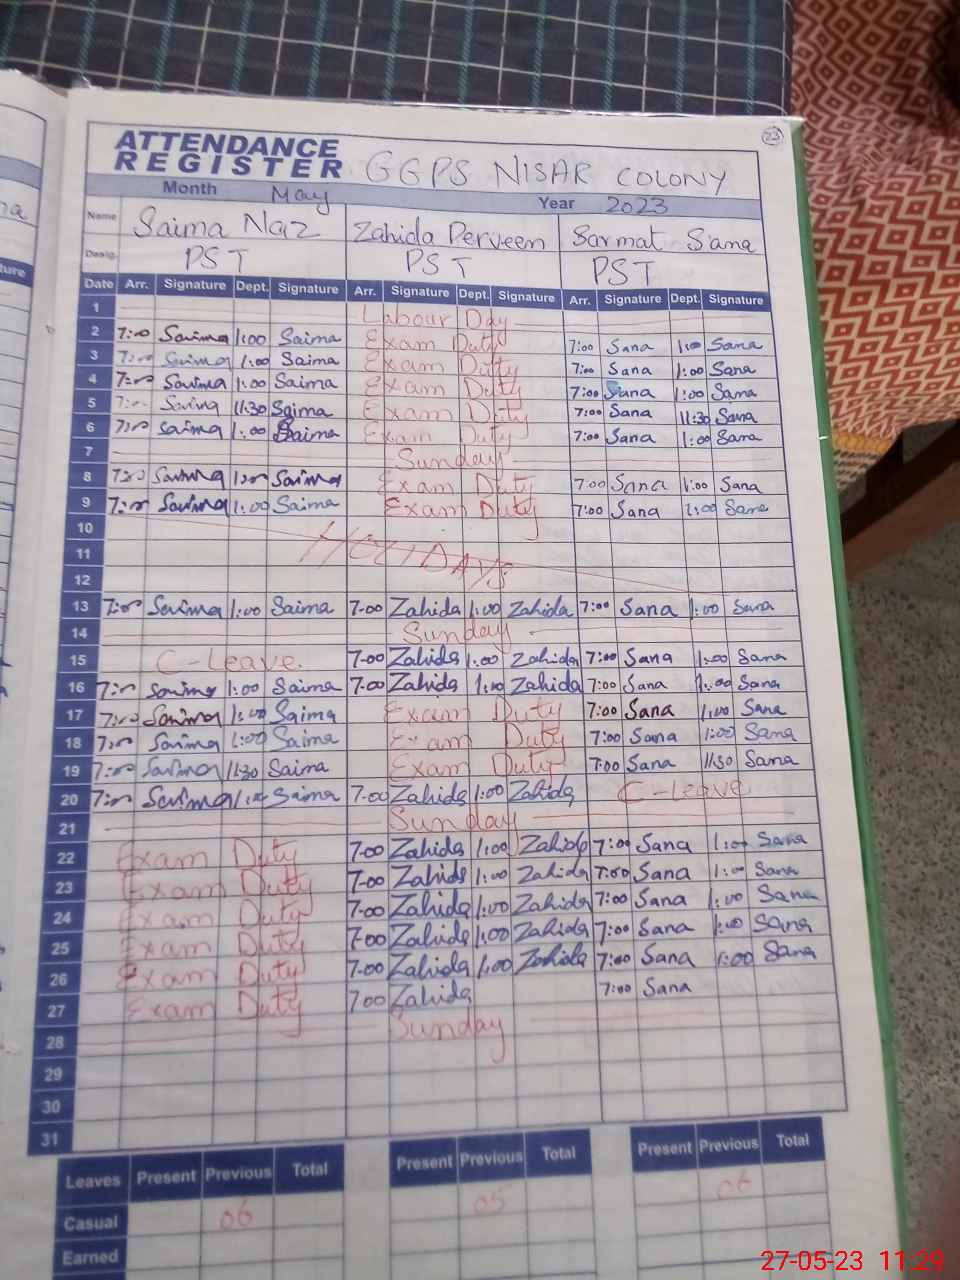 23
ATTENDANCE
REGISTER GGPS NISAR COLONY
Month May Year 2023
Name Saima Naz Zahida Perveen Sarmat Sana
Desig. PST PST PST
Date Arr. Signature Dept. Signature Arr. Signature Dept. Signature Arr. Signature Dept. Signature
1 Labour Day
2 7:00 Saima 1:00 Saima Exam Duty 7:00 Sana 1:00 Sana
3 7:00 Saima 1:00 Saima Exam Duty 7:00 Sana 1:00 Sana
4 7:00 Saima 1:00 Saima Exam Duty 7:00 Sana 1:00 Sana
5 7:00 Saima 11:30 Saima Exam Duty 7:00 Sana 11:30 Sana
6 7:00 Saima 1:00 Saima Exam Duty 7:00 Sana 1:00 Sana
7 Sunday
8 7:00 Saima 1:00 Saima Exam Duty 7:00 Sana 1:00 Sana
9 7:00 Saima 1:00 Saima Exam Duty 7:00 Sana 1:00 Sana
10
11 HOLIDAYS
12
13 7:00 Saima 1:00 Saima 7-00 Zahida 1:00 Zahida 7:00 Sana 1:00 Sana
14 Sunday
15 C-Leave 7-00 Zahida 1:00 Zahida 7:00 Sana 1:00 Sana
16 7:00 Saima 1:00 Saima 7-00 Zahida 1:00 Zahida 7:00 Sana 1:00 Sana
17 7:00 Saima 1:00 Saima Exam Duty 7:00 Sana 1:00 Sana
18 7:00 Saima 1:00 Saima Exam Duty 7:00 Sana 1:00 Sana
19 7:00 Saima 11:30 Saima Exam Duty 7:00 Sana 11:30 Sana
20 7:00 Saima 1:00 Saima 7-00 Zahida 1:00 Zahida C-Leave
21 Sunday
22 Exam Duty 7-00 Zahida 1:00 Zahida 7:00 Sana 1:00 Sana
23 Exam Duty 7-00 Zahida 1:00 Zahida 7:00 Sana 1:00 Sana
24 Exam Duty 7-00 Zahida 1:00 Zahida 7:00 Sana 1:00 Sana
25 Exam Duty 7-00 Zahida 1:00 Zahida 7:00 Sana 1:00 Sana
26 Exam Duty 7-00 Zahida 1:00 Zahida 7:00 Sana 1:00 Sana
27 Exam Duty 7:00 Zahida 7:00 Sana
28 Sunday
29
30
31
Leaves Present Previous Total Present Previous Total Present Previous Total
Casual 06 05 06
Earned
27-05-23 11:29